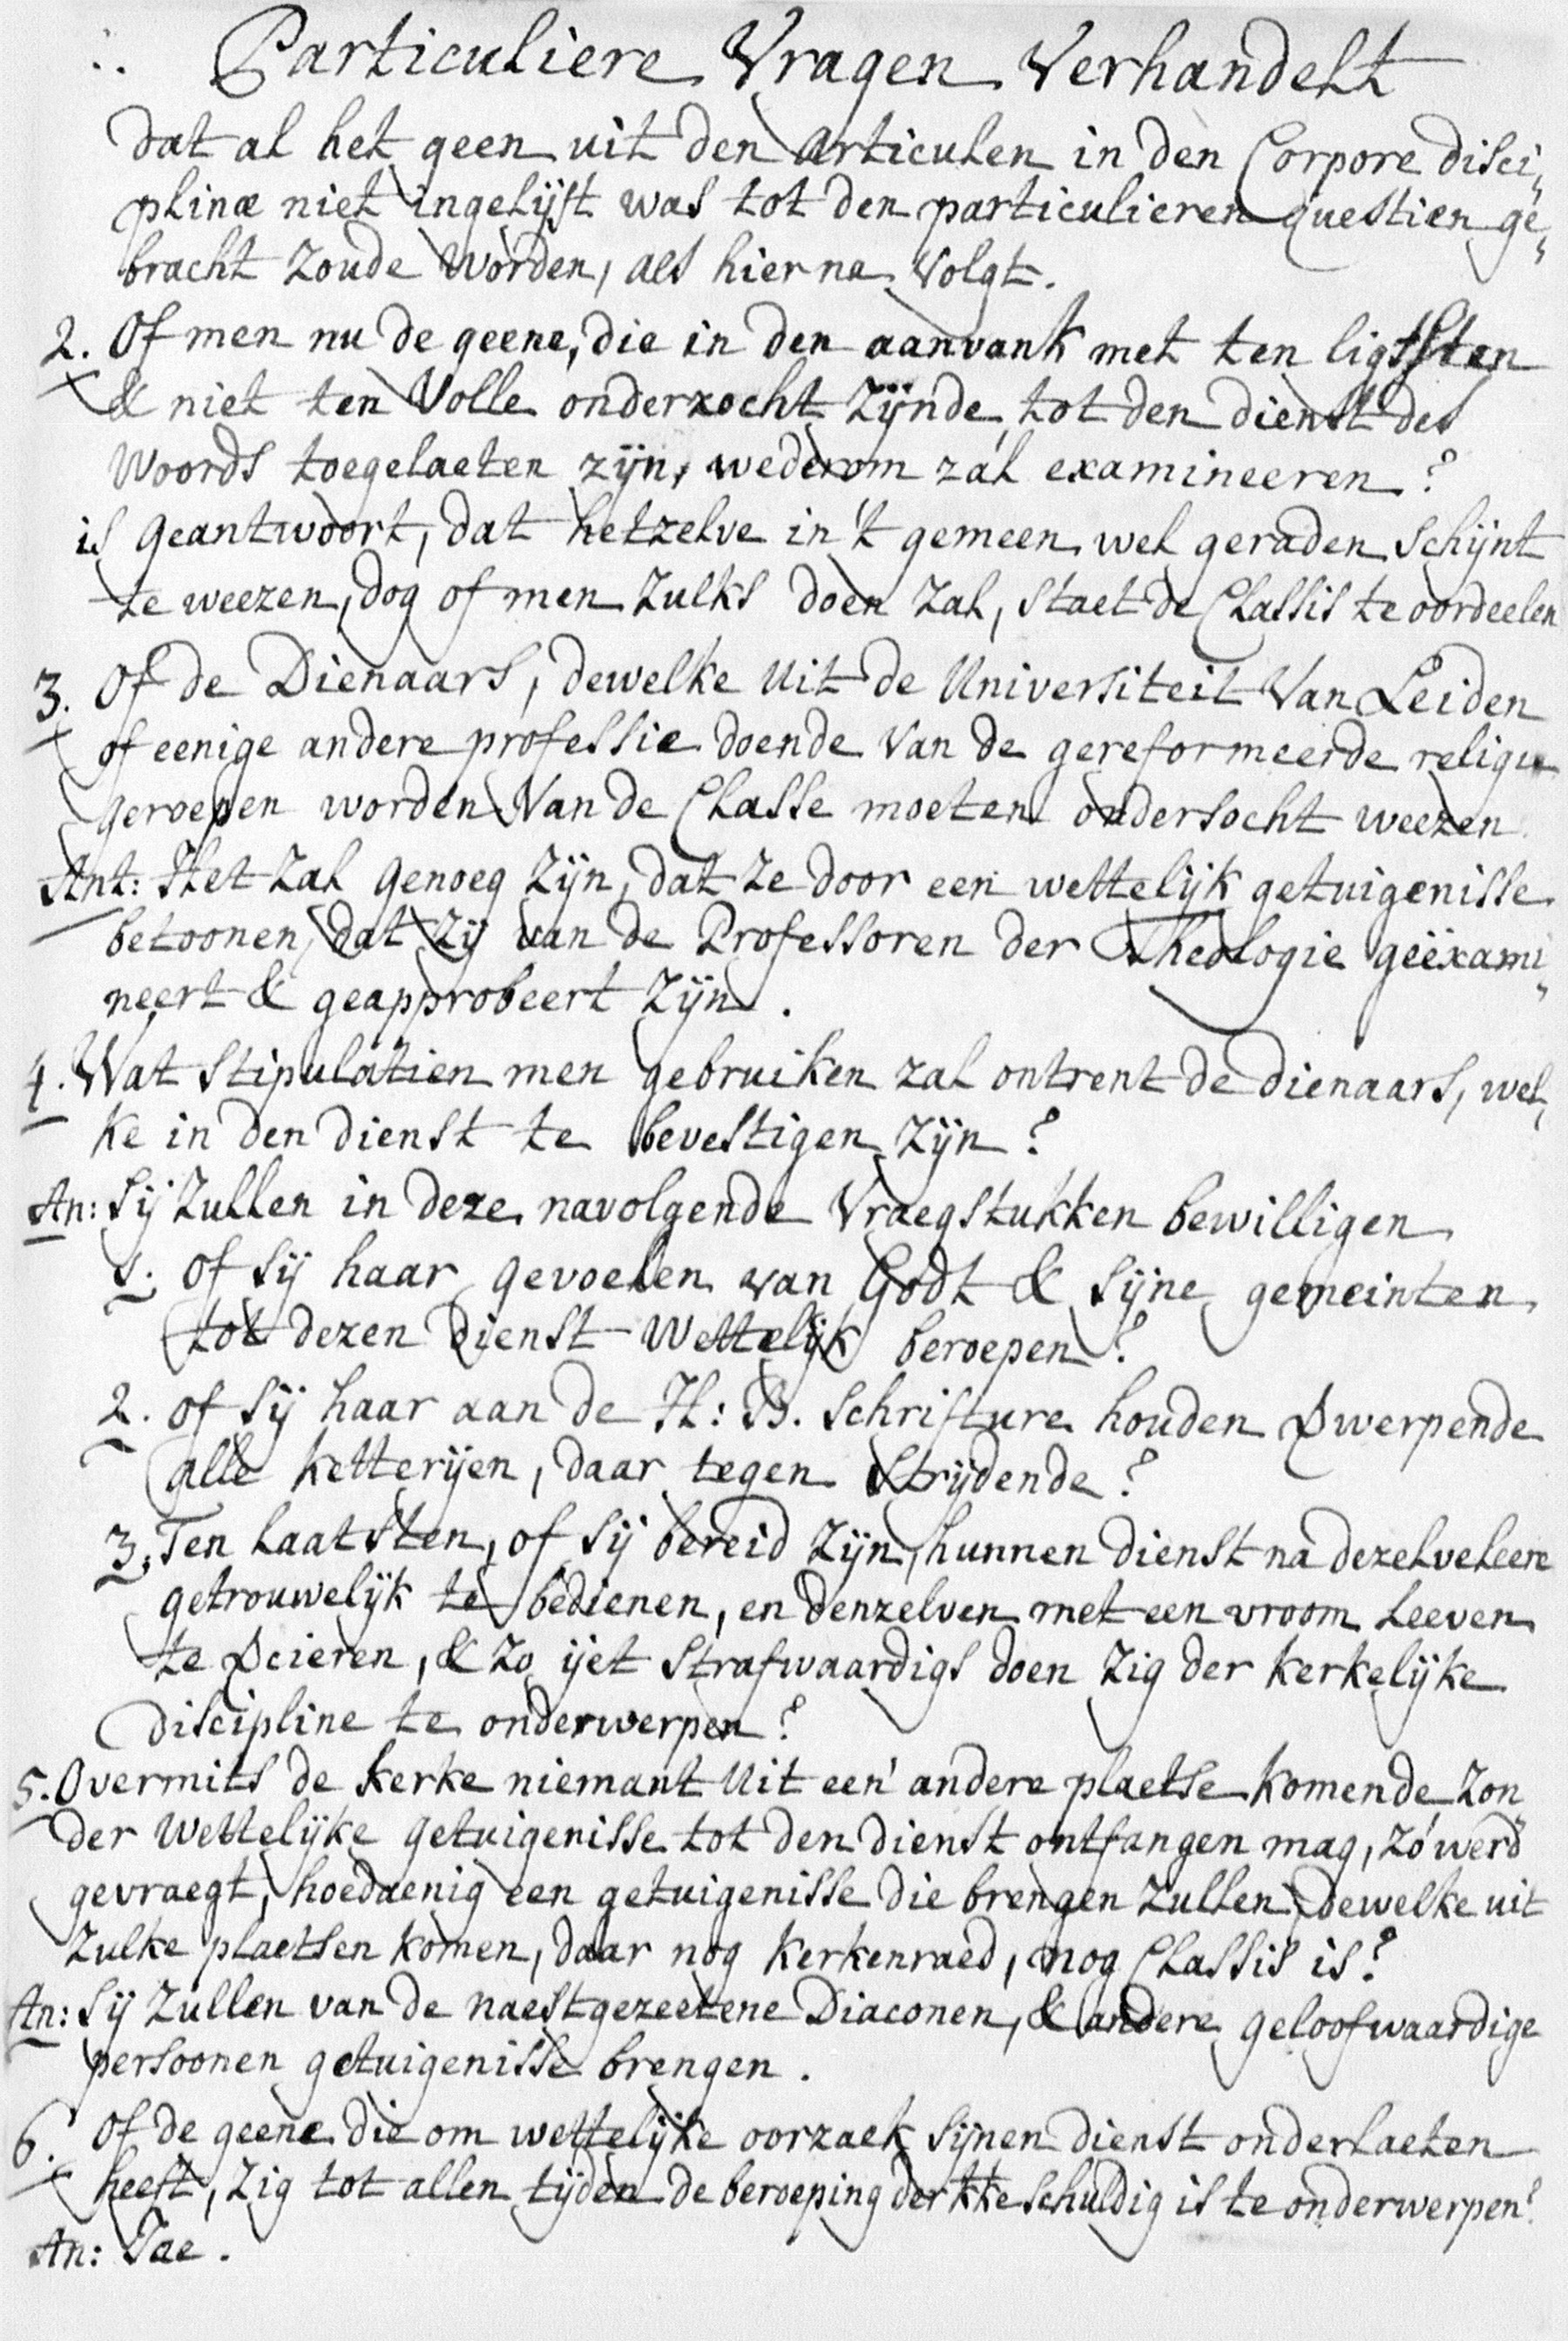 Particuliere Vragen Verhandelt
dat al het geen uit den Articulen in den Corpore disci„
plinæ niet ingelijft was tot den particulieren questien ge„
bracht zoude worden, als hier na Volgt.
2. Of men nu de geene, die in den aanvank met ten ligtsten
& niet ten Volle onderzocht zijnde tot den dienst des
Woords toegelaeten zijn, wederom zal examineeren?
is geantwoort, dat hetzelve in't gemeen wel geraden schijnt
te weezen, dog of men zulks doen zal, staet de Classis te oordeelen
3. Of de Dienaars, dewelke uit de Universiteit Van Leiden
of eenige andere professie doende Van de gereformeerde religie
geroepen worden Van de Classe moeten ondersocht weezen
Ant: Het zal genoeg zijn, dat ze door een wettelijk getuigenisse
betoonen, dat zij van de Professoren der Theologie geëxami„
neert & geapprobeert zijn.
4. Wat stipulatien men gebruiken zal ontrent de dienaars, wel„
ke in den dienst te bevestigen zijn?
An: Sij zullen in deze navolgende Vraegstukken bewilligen
1. of sij haar gevoelen van Godt & sijne gemeinten
tot dezen dienst wettelijk beroepen?
2. of sij haar aan de H: B. schrifture houden Dwerpende
alle ketterijen, daar tegen strijdende?
3. Ten laatsten, of sij bereid zijn, hunnen dienst na dezelve leere
getrouwelijk te bedienen, en denzelven met een vroom leeven
te Dcieren, & zo ijet strafwaardigs doen zig der kerkelijke
discipline te onderwerpen?
5. Overmits de kerke niemant uit een' andere plaetse komende zon„
der wettelijke getuigenisse tot den dienst ontfangen mag, zó werd
gevraegt, hoedaenig een getuigenisse die brengen zullen, dewelke uit
zulke plaetsen komen, daar nog kerkenraed, nog Classis is?
An: Sij zullen van de naestgezeetene Diaconen, & andere geloofwaardige
persoonen getuigenisse brengen.
6. of de geene die om wettelijke oorzaek sijnen dienst onderlaeten
heeft, zig tot allen tijden de beroeping der kke schuldig is te onderwerpen?
An: Jae.